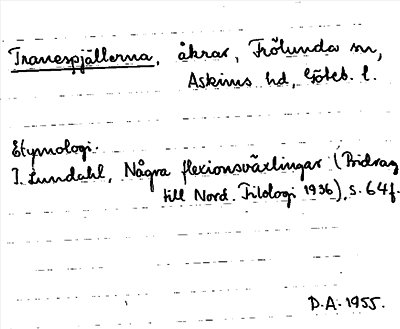 Tranespjällerna, åkrar, Frölunda sn,
Askims hd, Göteb. l.
Etymologi.
I. Lundahl, Några flexionsväxlingar (Bidrag
till Nord. Filologi 1936), s. 64f.
D.A. 1955.